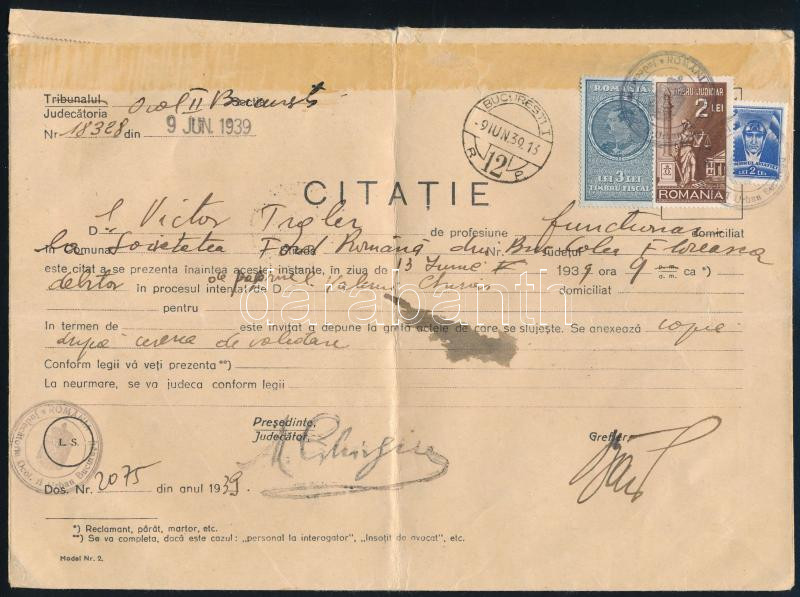 Tribunalul Ocol II București
Judecătoria
Nr. 18328 din 9 JUN. 1939
BUCUREȘTI. 1
-9 IUN. 39. 13
12
ROMANIA
LEI 3 LEI
TIMBRU FISCAL
TIMBRU JUDICIAR
2 LEI
ROMANIA
LEI 2 LEI
CITAȚIE
D Victor de profesiune funcționar domiciliat
în Comuna Societatea Ford Română din Nr. județul Floreasca
este citat a se prezenta înaintea acestei instanțe, în ziua de 13 Iunie 1939 ora 9 a. m. ca *)
debitor în procesul intentat de D. Valeriu domiciliat
pentru
În termen de este invitat a depune la grefă actele de care se slujește. Se anexează copie
după cererea de validare
Conform legii vă veți prezenta **)
La neurmare, se va judeca conform legii
Președinte,
Judecător,
Grefier,
L. S.
Judecătoria Ocol. II Urban București * ROMANIA
Dos. Nr. 2075 din anul 1939
*) Reclamant, pârât, martor, etc.
**) Se va completa, dacă este cazul: „personal la interogator", „însoțit de avocat", etc.
Model Nr. 2.
darabanth